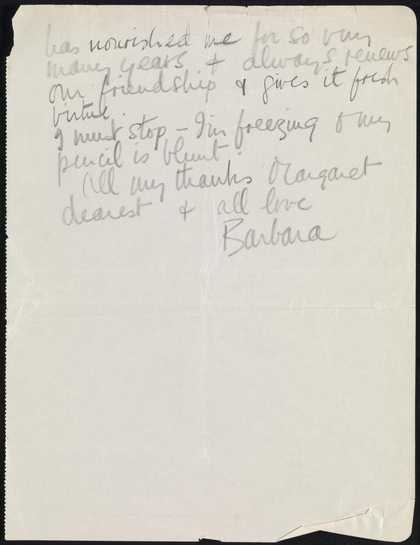 has nourished me for so very
many years & always renews
our friendship & gives it fresh
virtue.
I must stop – I'm freezing & my
pencil is blunt.
All my thanks Margaret
dearest & all love
Barbara